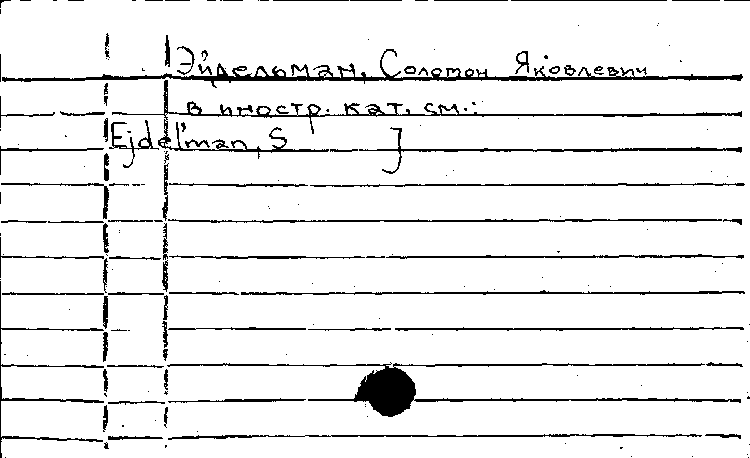 Эйдельман, Соломон Яковлевич
в иностр. кат. см.:
Ejdel'man, S ]